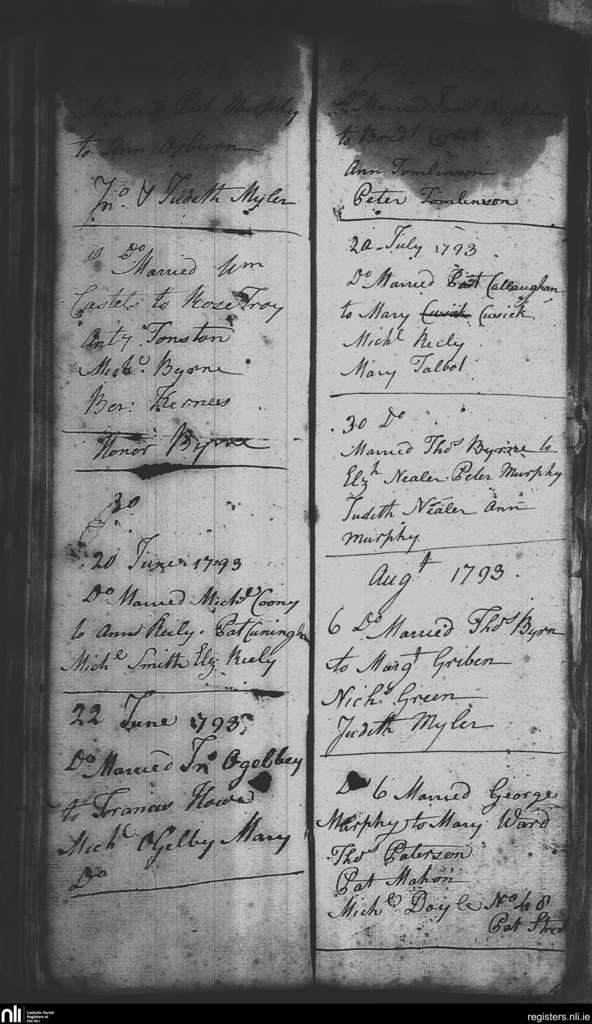 Married Pat Murphy
to Ann Osburn
Jno. & Judeth Myler
Do Married Wm
Castels to Rose Troy
Anty Tonston
Michl. Byrne
Ber: Kernes
Honor Byrne
30
20 June 1793
Do Married Michl Coony
to Ann Reily. Pat Cuningham
Michl Smith Elz Reely
22 June 1793
Do Married Jno Ogelbey
to Francis Howe
Michl OGelby Mary
Do
Do Married
to Bridt Corbet
Ann Tomlinson
Peter Tomlinson
20 July 1793
Do Married Pat Callaughan
to Mary Cusick Cusick
Michl Reily
Mary Talbot
30 Do
Married Thos Byrne to
Elzh Nealer Peter Murphy
Judeth Nealer Ann
Murphy
Augt 1793.
6 Do Married Thos Byrn
to Margt Griben
Nichs Green
Judith Myler
Do 6 Married George
Murphy to Mary Ward
Thos Paterson
Pat Mahon
Michl Doyle No 48
Pat Stree
nli
Catholic Parish
Registers at
the NLI
registers.nli.ie